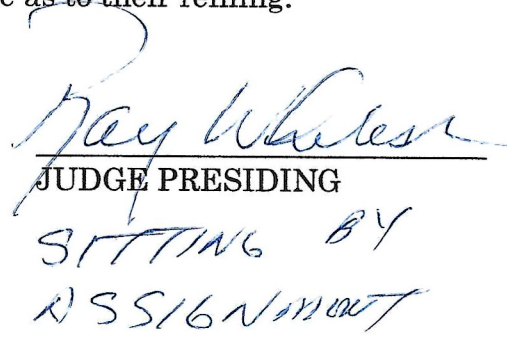 e as to their refiling.
Ray Wheless
JUDGE PRESIDING
SITTING BY
ASSIGNMENT